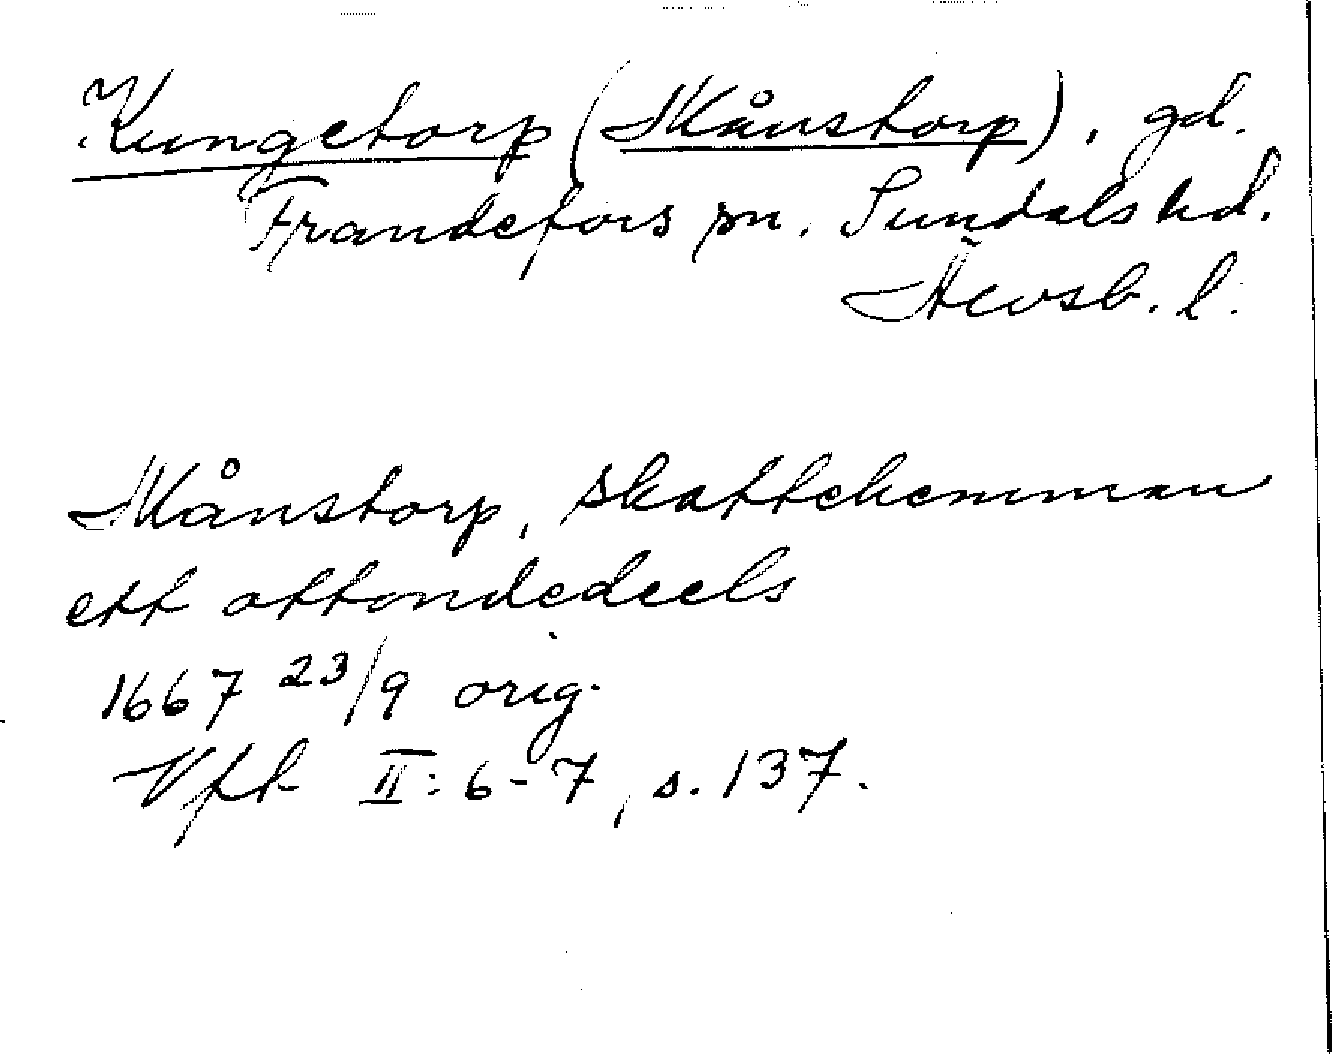 Kungetorp (Månstorp), gd.
Frändefors sn. Sundals hd.
Älvsb. l.
Månstorp, skattehemman
ett attondedeels
1667 23/9 orig.
Vfk II: 6-7, s. 137.